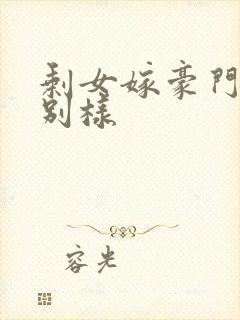 剩女嫁豪門
别樣
容光